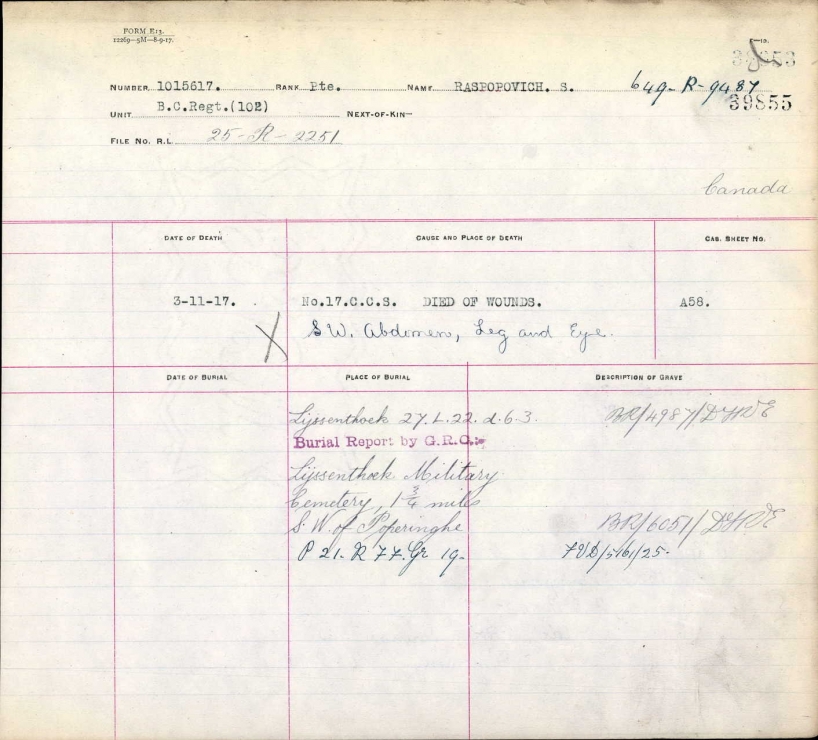 FORM E13.
12269—5M—8-9-17.
NUMBER 1015617. RANK Pte. NAME RASPOPOVICH. S. 649-R-9487
39855
UNIT B.C.Regt.(102) NEXT-OF-KIN—
FILE NO. R.L. 25-R-2251
Canada
DATE OF DEATH CAUSE AND PLACE OF DEATH CAS. SHEET NO.
3-11-17. No.17.C.C.S. DIED OF WOUNDS. A58.
S.W. Abdomen, Leg and Eye.
DATE OF BURIAL PLACE OF BURIAL DESCRIPTION OF GRAVE
Lijssenthoek 27.L.22.d.6.3. BR/4987/DGR&E
Burial Report by G.R.C.:-
Lijssenthoek Military
Cemetery, 1 3/4 miles
S.W. of Poperinghe BR/6051/DGR&E
P 21. R 77. Gr 19.